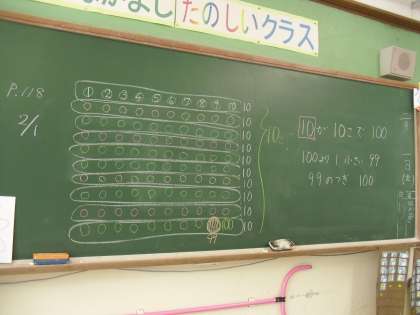 なかよし たのしいクラス
P.118
2/1
① ② ③ ④ ⑤ ⑥ ⑦ ⑧ ⑨ ⑩ 10
10
10
10
10
10
10
10
10
100 10
99
10こ
10が 10こで 100
100より 1小さい 99
99のつぎ 100